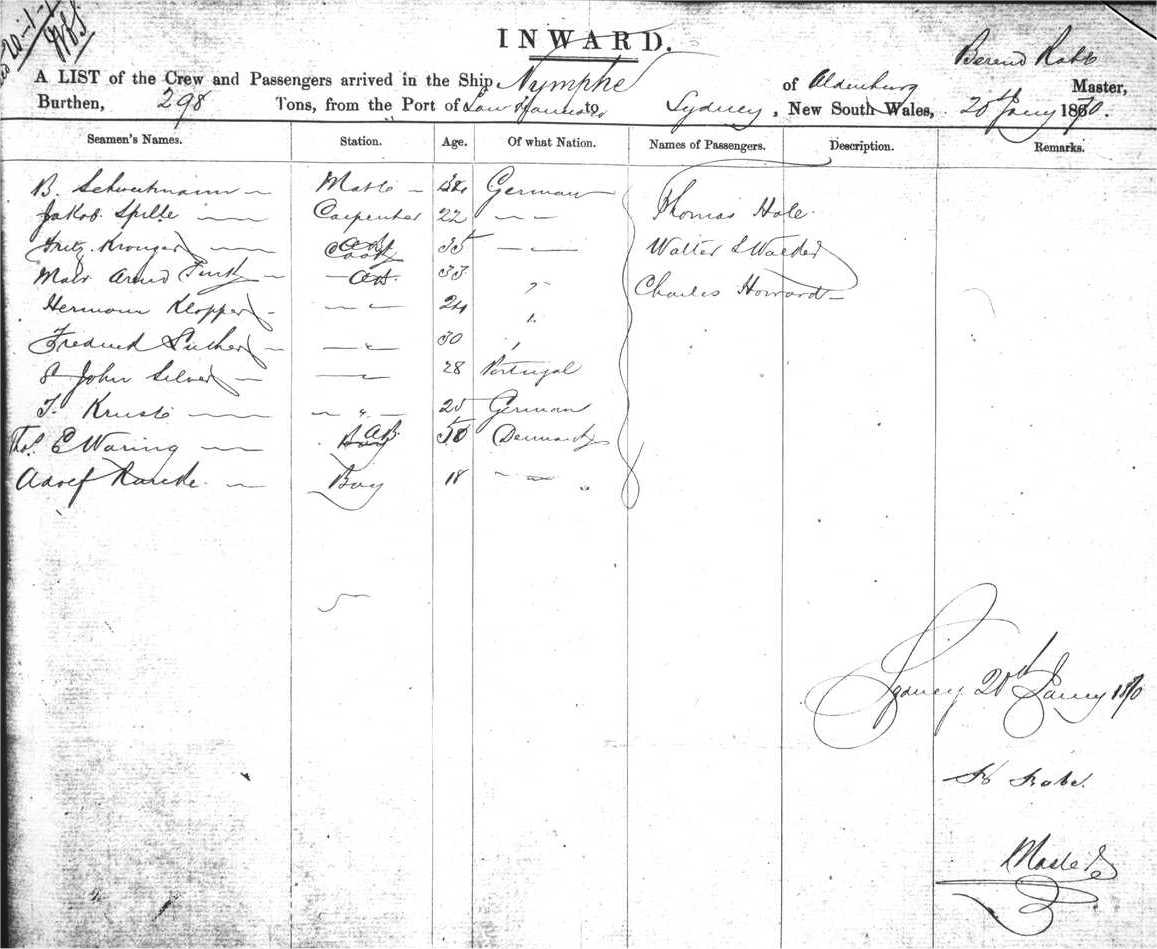 20-1-
INWARD.
Berend Rabe
A LIST of the Crew and Passengers arrived in the Ship Nymphe of Oldenburg Master,
Burthen, 298 Tons, from the Port of San to Sydney, New South Wales, 20th Jany 1870.
Seamen's Names. Station. Age. Of what Nation. Names of Passengers. Description. Remarks.
B. Mate German
Jakob Spille Carpenter 22 — — Thomas Hale
Fritz Kruger Cook 35 — — Walter S Walder
Arend AB. 33 " Charles Howard
Hermann Klopper — " — 24 "
Frederick — " — 30 "
John Silver — " — 28 Portugal
F. Kruse — " — 25 German
Thos. E Waring AB 50 Denmark
Adolf Boy 18 — " —
Sydney 20th Jany 1870
B Rabe.
Master